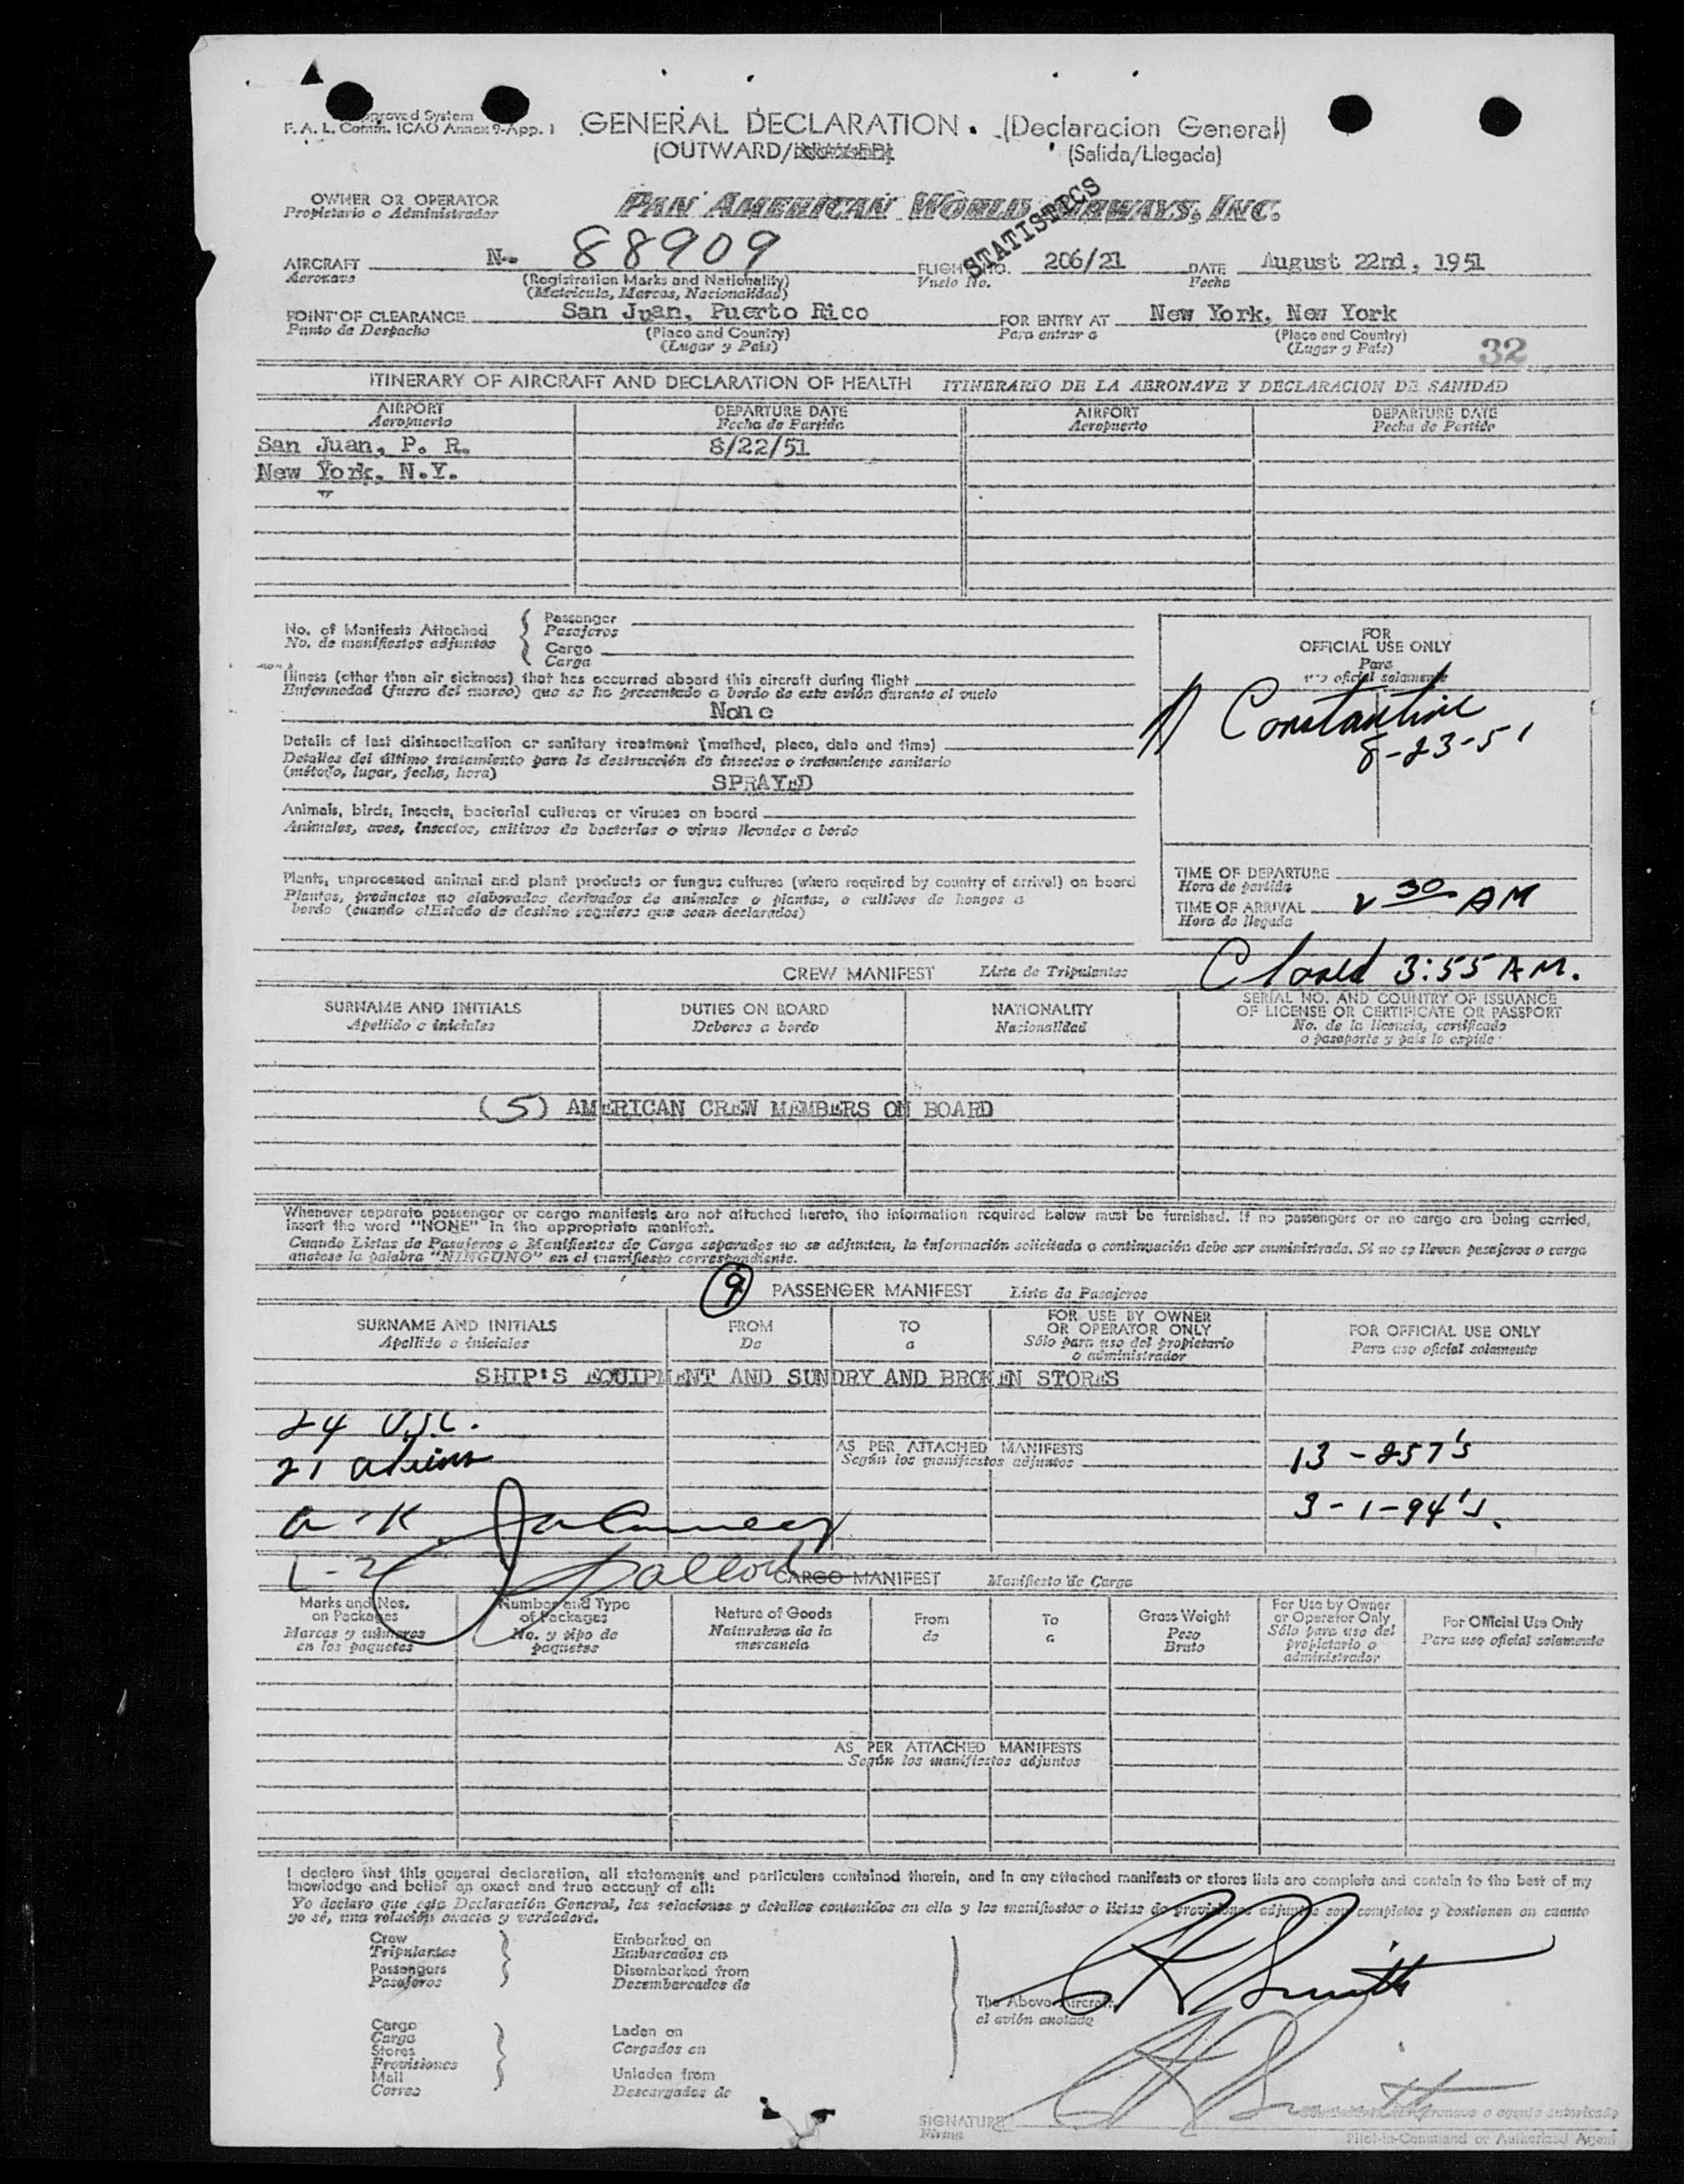 Approved System
F. A. L. Comm. ICAO Annex 9-App. 1
GENERAL DECLARATION. (Declaracion General)
(OUTWARD/ (Salida/Llegada)
OWNER OR OPERATOR
Propietario o Administrador
PAN AMERICAN WORLD AIRWAYS, INC.
STATISTICS
AIRCRAFT N- 88909 FLIGHT NO. 206/21 DATE August 22nd, 1951
Aeronave (Registration Marks and Nationality) Vuelo No. Fecha
(Matricula, Marcas, Nacionalidad)
POINT OF CLEARANCE San Juan, Puerto Rico FOR ENTRY AT New York, New York
Punto de Despacho (Place and Country) Para entrar a (Place and Country)
(Lugar y Pais) (Lugar y Pais)
32
ITINERARY OF AIRCRAFT AND DECLARATION OF HEALTH ITINERARIO DE LA AERONAVE Y DECLARACION DE SANIDAD
AIRPORT DEPARTURE DATE AIRPORT DEPARTURE DATE
Aeropuerto Fecha de Partida Aeropuerto Fecha de Partida
San Juan, P. R. 8/22/51
New York, N.Y.
No. of Manifests Attached
No. de manifiestos adjuntos
Passenger
Pasajeros
Cargo
Carga
FOR
OFFICIAL USE ONLY
Para
uso oficial solamente
Illness (other than air sickness) that has occurred aboard this aircraft during flight
Enfermedad (fuera del mareo) que se ha presentado a bordo de este avión durante el vuelo
None
Constantine
8-23-51
Details of last disinsectization or sanitary treatment (method, place, date and time)
Detalles del último tratamiento para la destrucción de insectos o tratamiento sanitario
(método, lugar, fecha, hora)
SPRAYED
Animals, birds, insects, bacterial cultures or viruses on board
Animales, aves, insectos, cultivos de bacterias o virus llevados a bordo
Plants, unprocessed animal and plant products or fungus cultures (where required by country of arrival) on board
Plantas, productos no elaborados derivados de animales o plantas, o cultivos de hongos a
bordo (cuando el Estado de destino requiera que sean declarados)
TIME OF DEPARTURE
Hora de partida
TIME OF ARRIVAL 2 30 AM
Hora de llegada
Closed 3:55 AM.
CREW MANIFEST Lista de Tripulantes
SURNAME AND INITIALS DUTIES ON BOARD NATIONALITY SERIAL NO. AND COUNTRY OF ISSUANCE
OF LICENSE OR CERTIFICATE OR PASSPORT
Apellido e iniciales Deberes a bordo Nacionalidad No. de la licencia, certificado
o pasaporte y país lo expide
(5) AMERICAN CREW MEMBERS ON BOARD
Whenever separate passenger or cargo manifests are not attached hereto, the information required below must be furnished. If no passengers or no cargo are being carried,
insert the word "NONE" in the appropriate manifest.
Cuando Listas de Pasajeros o Manifiestos de Carga separados no se adjunten, la información solicitada a continuación debe ser suministrada. Si no se llevan pasajeros o carga
anotese la palabra "NINGUNO" en el manifiesto correspondiente.
9 PASSENGER MANIFEST Lista de Pasajeros
SURNAME AND INITIALS FROM TO FOR USE BY OWNER
OR OPERATOR ONLY FOR OFFICIAL USE ONLY
Apellido e iniciales De a Sólo para uso del propietario
o administrador Para uso oficial solamente
SHIP'S EQUIPMENT AND SUNDRY AND BROKEN STORES
24 U.S.C.
21 aliens
AS PER ATTACHED MANIFESTS
Según los manifiestos adjuntos
13 - 257's
3 - 1-94's.
L-2
CARGO MANIFEST Manifiesto de Carga
Marks and Nos.
on Packages
Marcas y números
en los paquetes
Number and Type
of Packages
No. y tipo de
paquetes
Nature of Goods
Naturaleza de la
mercancía
From
de
To
a
Gross Weight
Peso
Bruto
For Use by Owner
or Operator Only
Sólo para uso del
propietario o
administrador
For Official Use Only
Para uso oficial solamente
AS PER ATTACHED MANIFESTS
Según los manifiestos adjuntos
I declare that this general declaration, all statements and particulars contained therein, and in any attached manifests or stores lists are complete and contain to the best of my
knowledge and belief an exact and true account of all:
Yo declaro que esta Declaración General, las relaciones y detalles contenidos en ella y los manifiestos o listas de provisiones adjuntos son completos y contienen en cuanto
yo sé, una relación exacta y verdadera.
Crew
Tripulantes
Passengers
Pasajeros
Embarked on
Embarcados en
Disembarked from
Desembarcados de
Cargo
Carga
Stores
Provisiones
Mail
Correo
Laden on
Cargados en
Unladen from
Descargados de
The Above Aircraft
el avión anotado
Smith
Smith
SIGNATURE
Firma
aeronave o agente autorizado
Pilot-in-Command or Authorized Agent